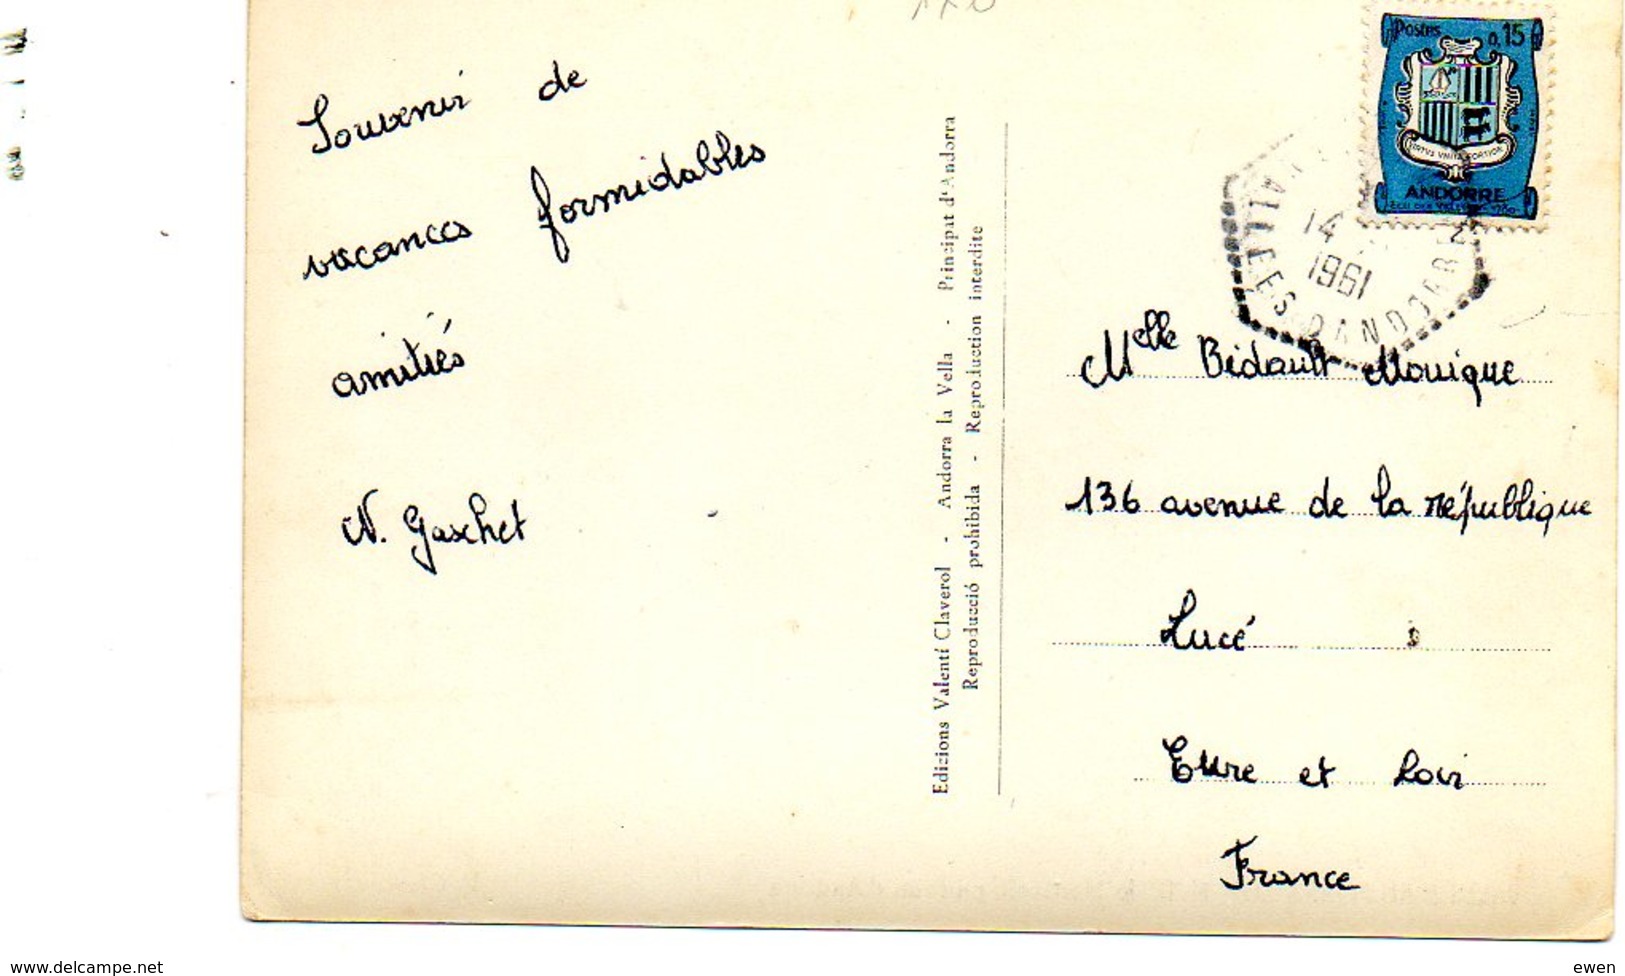 Souvenir de
vacances formidables
amitiés
N. Gaschet
Edicions Valentí Claverol - Andorra la Vella - Principat d'Andorra
Reproducció prohibida - Reproduction interdite
Postes 0,15
VIRTVS VNITA FORTIOR
ANDORRE
14
1961
VALLEES D'ANDORRE
Melle Bidault Monique
136 avenue de la république
Lucé
Eure et Loir
France
www.delcampe.net
ewen